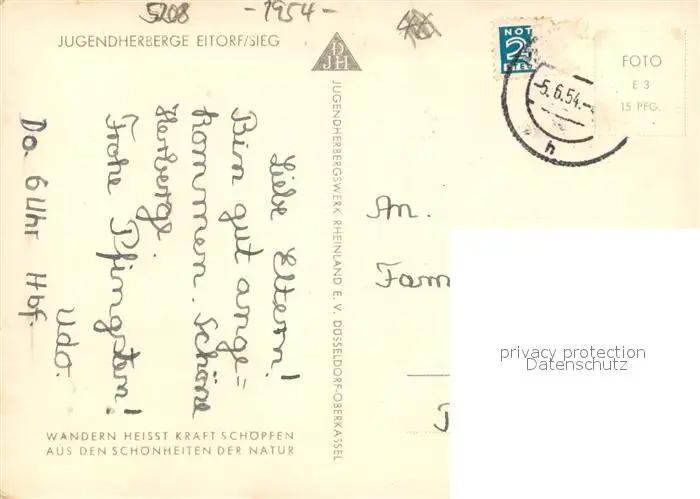 5208
-1954-
JUGENDHERBERGE EITORF/SIEG
DJH
NOT
2
5.6.54.-
h
FOTO
E 3
15 PFG.
Liebe Eltern!
Bin gut ange=
kommen. Schöne
Herberge.
Frohe Pfingsten!
Udo.
Do. 6 Uhr Hbf.
JUGENDHERBERGSWERK RHEINLAND E. V. DÜSSELDORF-OBERKASSEL
An.
Fam
privacy protection
Datenschutz
WANDERN HEISST KRAFT SCHÖPFEN
AUS DEN SCHÖNHEITEN DER NATUR